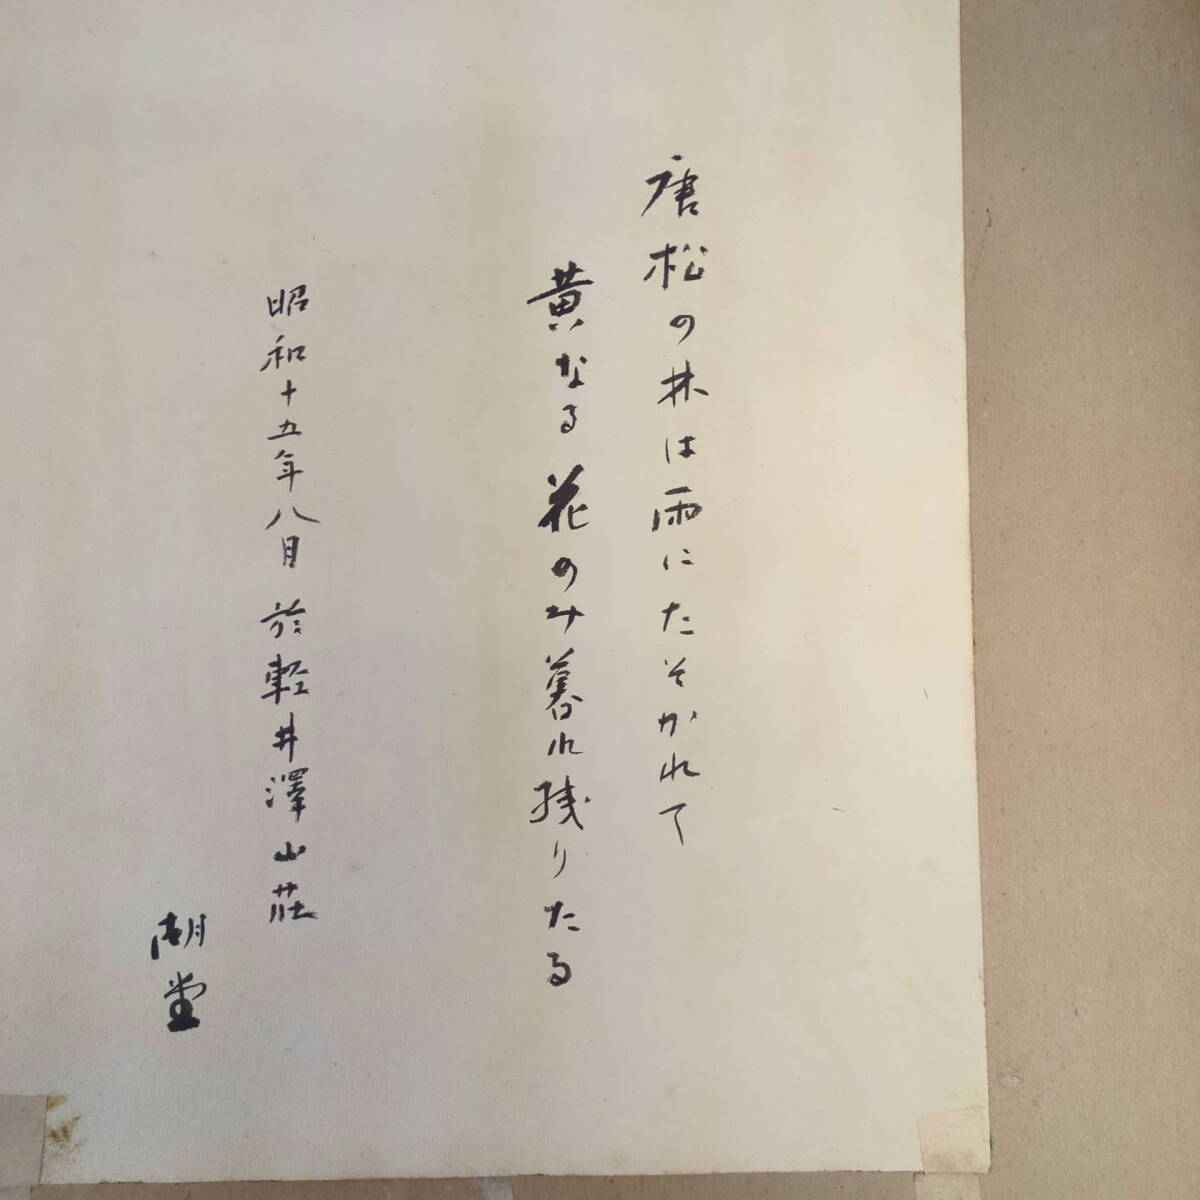 唐松の林は雨にたそかれて
黄なる花のみ暮れ残りたる
昭和十五年八月 於軽井澤山荘
胡堂